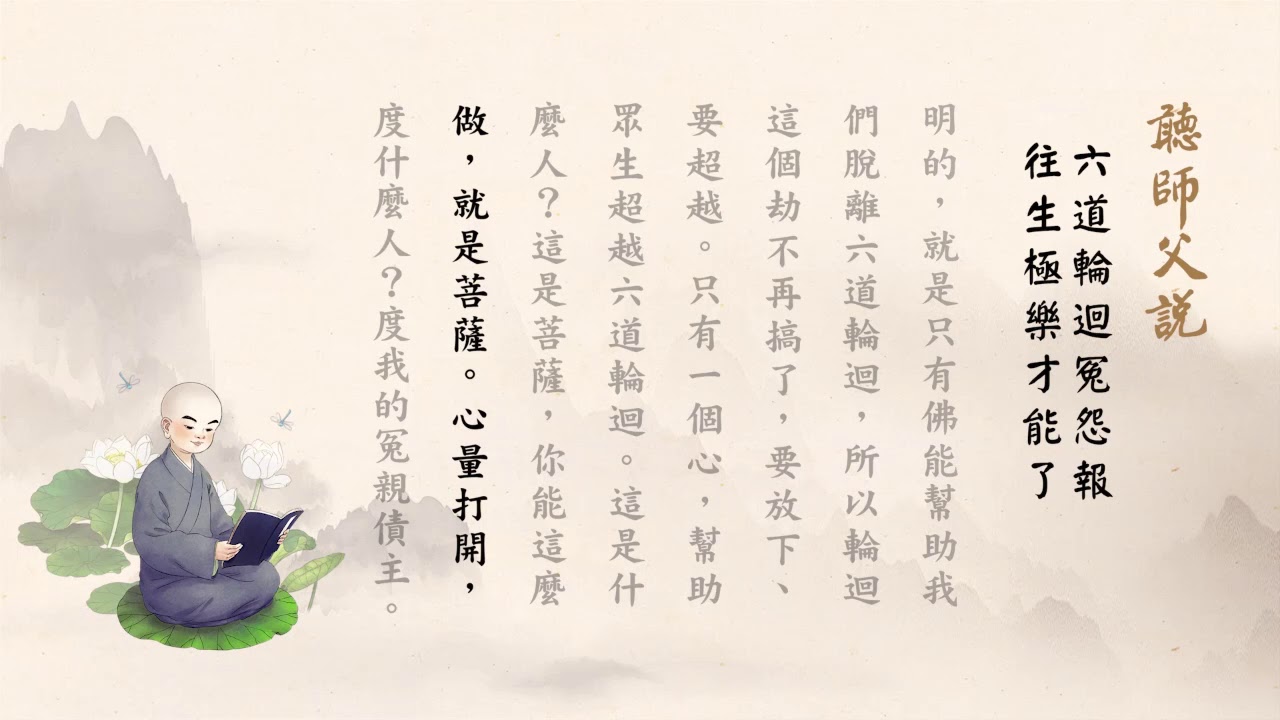 聽師父説
六道輪迴冤怨報
往生極樂才能了
明的，就是只有佛能幫助我
們脫離六道輪迴，所以輪迴
這個劫不再搞了，要放下、
要超越。只有一個心，幫助
眾生超越六道輪迴。這是什
麼人？這是菩薩，你能這麼
做，就是菩薩。心量打開，
度什麼人？度我的冤親債主。